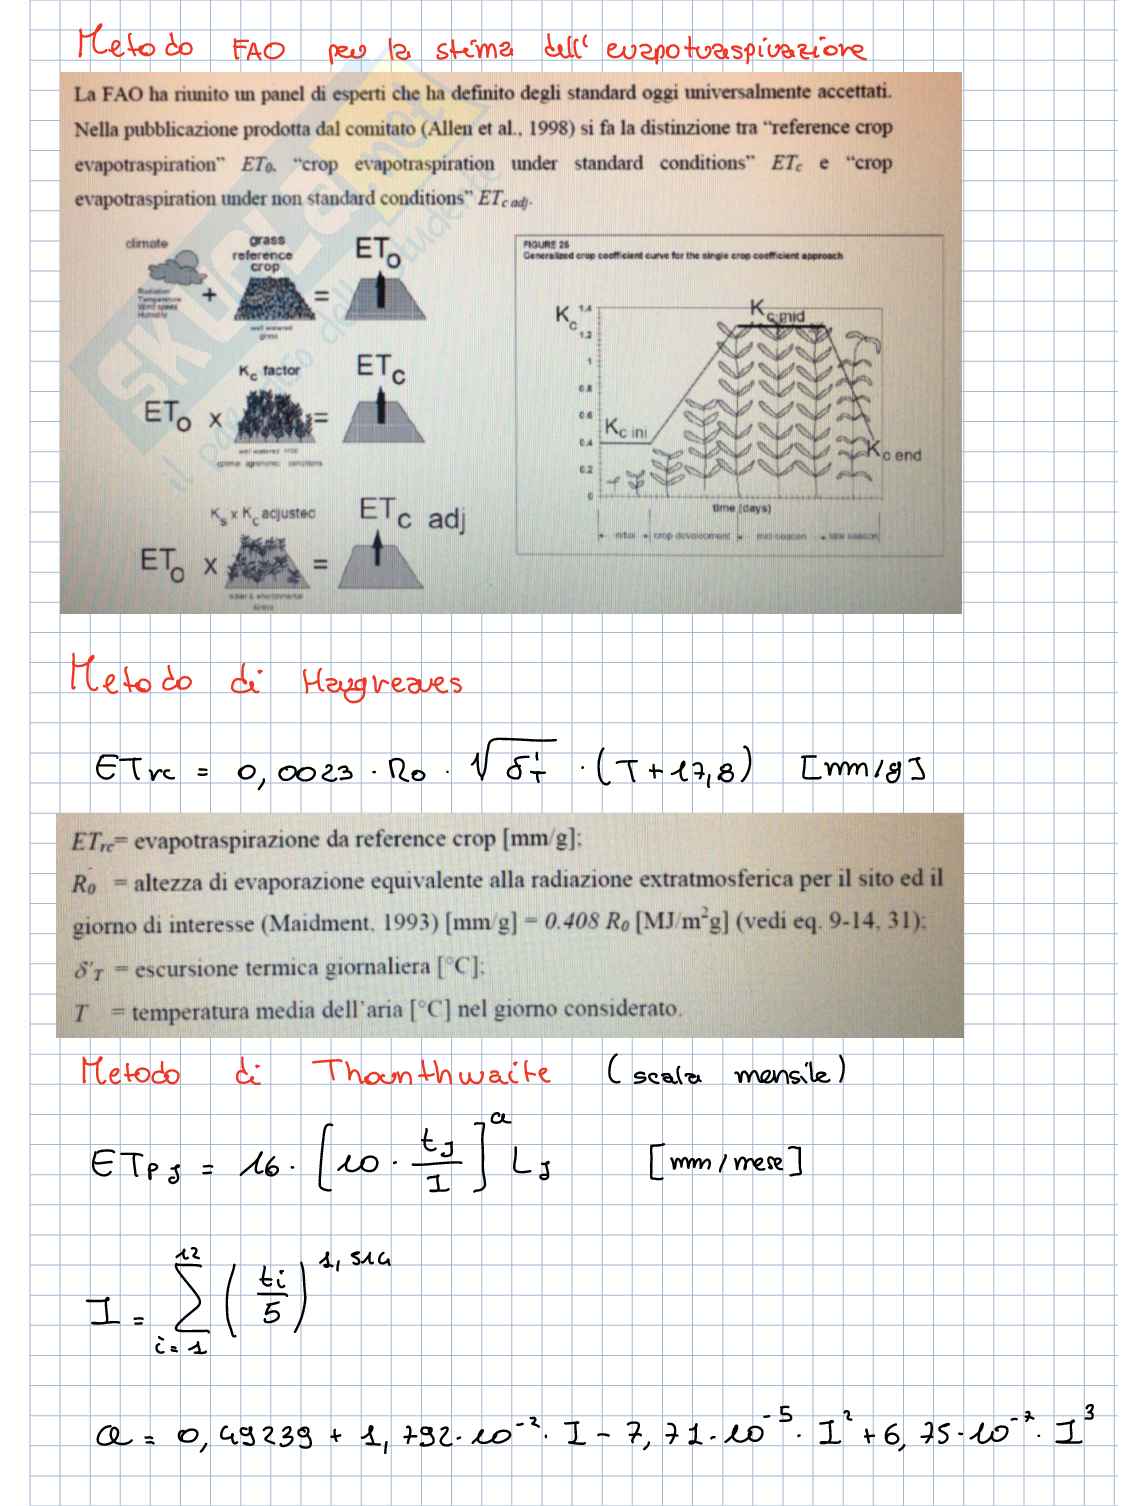 Metodo FAO per la stima dell' evapotraspirazione
La FAO ha riunito un panel di esperti che ha definito degli standard oggi universalmente accettati.
Nella pubblicazione prodotta dal comitato (Allen et al., 1998) si fa la distinzione tra “reference crop
evapotraspiration” ET0, “crop evapotraspiration under standard conditions” ETc e “crop
evapotraspiration under non standard conditions” ETc adj.
climate
Radiation
Temperature
Wind speed
Humidity
+
grass
reference
crop
well watered
grass
=
ETo
Kc factor
ETo x
=
ETc
well watered crop
optimal agronomic conditions
Ks x Kc adjusted
ETo x
=
ETc adj
water & environmental
stress
FIGURE 25
Generalized crop coefficient curve for the single crop coefficient approach
Kc
1.4
1.2
1
0.8
0.6
0.4
0.2
0
Kc ini
Kc mid
Kc end
time (days)
initial
crop development
mid-season
late season
Metodo di Hargreaves
ETrc = 0,0023 · R0 · √δ'T · (T + 17,8) [mm/g]
ETrc= evapotraspirazione da reference crop [mm/g];
R0 = altezza di evaporazione equivalente alla radiazione extratmosferica per il sito ed il
giorno di interesse (Maidment, 1993) [mm/g] = 0.408 R0 [MJ/m²g] (vedi eq. 9-14, 31);
δ'T = escursione termica giornaliera [°C];
T = temperatura media dell'aria [°C] nel giorno considerato.
Metodo di Thornthwaite (scala mensile)
ETPJ = 16 · [10 · tJ/I]^a LJ [mm/mese]
I = Σ i=1 12 (ti/5)^1,514
a = 0,49239 + 1,792·10⁻²· I − 7,71·10⁻⁵· I² + 6,75·10⁻⁷· I³